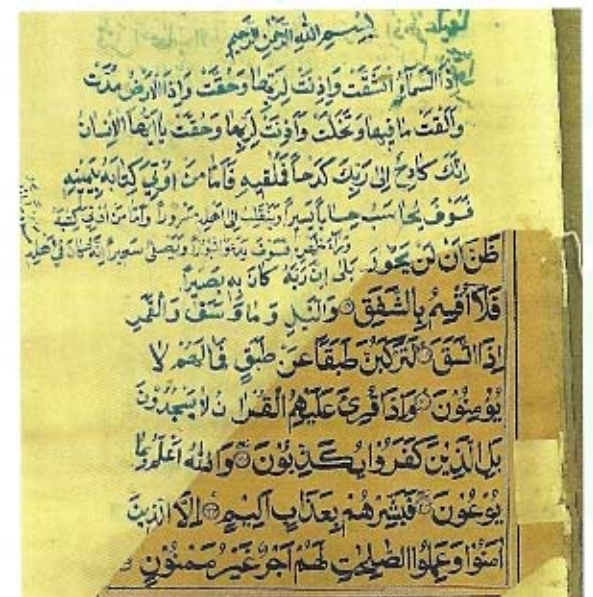 بِسْمِ اللهِ الرَّحْمٰنِ الرَّحِيْمِ
اِذَا السَّمَآءُ انْشَقَّتْ وَاَذِنَتْ لِرَبِّهَا وَحُقَّتْ وَاِذَا الْاَرْضُ مُدَّتْ
وَاَلْقَتْ مَا فِيهَا وَتَخَلَّتْ وَاَذِنَتْ لِرَبِّهَا وَحُقَّتْ يَا اَيُّهَا الْاِنْسَانُ
اِنَّكَ كَادِحٌ اِلٰى رَبِّكَ كَدْحاً فَمُلٰقِيهِ فَاَمَّا مَنْ اُوتِىَ كِتَابَهُ بِيَمِينِهِ
فَسَوْفَ يُحَاسَبُ حِسَاباً يَسِيْراً وَيَنْقَلِبُ اِلٰى اَهْلِهِ مَسْرُوراً وَاَمَّا مَنْ اُوتِىَ كِتٰبَهُ
وَرَآءَ ظَهْرِهِ فَسَوْفَ يَدْعُوا ثُبُوْراً وَيَصْلٰى سَعِيراً اِنَّهُ كَانَ فِى اَهْلِهِ
ظَنَّ اَنْ لَنْ يَحُوْرَ بَلٰى اِنَّ رَبَّهُ كَانَ بِهِ بَصِيْراً
فَلَآ اُقْسِمُ بِالشَّفَقِ وَالَّيْلِ وَمَا وَسَقَ وَالْقَمَرِ
اِذَا اتَّسَقَ لَتَرْكَبُنَّ طَبَقاً عَنْ طَبَقٍ فَمَا لَهُمْ لَا
يُؤْمِنُوْنَ وَاِذَا قُرِئَ عَلَيْهِمُ الْقُرْاٰنُ لَا يَسْجُدُوْنَ
بَلِ الَّذِيْنَ كَفَرُوْا يُكَذِّبُوْنَ وَاللهُ اَعْلَمُ بِمَا
يُوْعُوْنَ فَبَشِّرْهُمْ بِعَذَابٍ اَلِيْمٍ اِلَّا الَّذِيْنَ
اٰمَنُوْا وَعَمِلُوا الصّٰلِحٰتِ لَهُمْ اَجْرٌ غَيْرُ مَمْنُوْنٍ